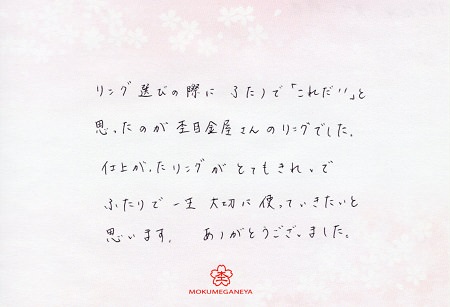 リング選びの際に ふたりで「これだ!!」と
思ったのが杢目金屋さんのリングでした。
仕上がったリングがとてもきれいで
ふたりで一生 大切に使っていきたいと
思います。 ありがとうございました。
杢
MOKUMEGANEYA